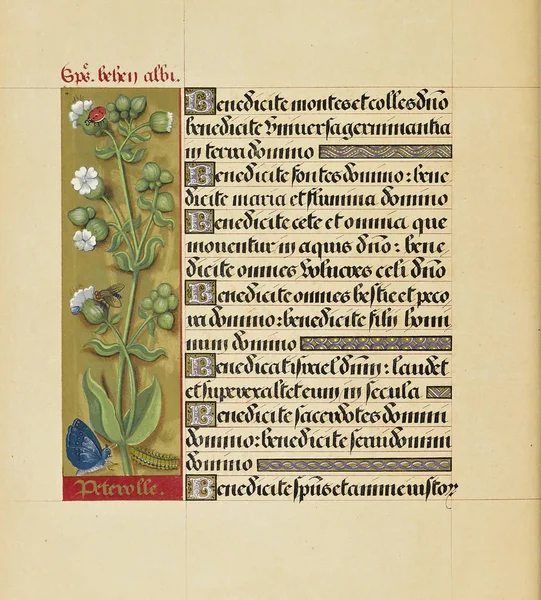 Spēs. behen albi.
Benedicite montes et colles dn̄o
benedicite vniuersa germinantia
in terra domino
Benedicite fontes domino: bene
dicite maria et flumina domino
Benedicite cete et omnia que
mouentur in aquis dn̄o: bene
dicite omnes volucres celi dn̄o
Benedicite omnes bestie et peco
ra domino: benedicite filii homi
num domino
Benedicat israel dn̄m: laudet
et superexaltet eum in secula
Benedicite sacerdotes domini
domino: benedicite serui domini
domino
Benedicite sp̄us et anime iustor
Peterolle.